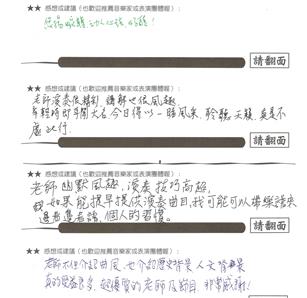 ★★ 感想或建議(也歡迎推薦音樂家或表演團體喔):
請翻面
★★ 感想或建議(也歡迎推薦音樂家或表演團體喔):
老師演奏很精彩,講解也很風趣。
年輕時即聞大名,今日得以一睹風采,聆聽天籟,真是不
虛此行。
請翻面
★★ 感想或建議(也歡迎推薦音樂家或表演團體喔):
老師幽默風趣,演奏技巧高超,
如果能提早提供演奏曲目,我可能可以
邊看邊聽,個人的習慣。
請翻面
★★ 感想或建議(也歡迎推薦音樂家或表演團體喔):
老師不但介紹曲風,也介紹歷史背景、人文背景
真的受益良多,超優質的老師及節目,非常感謝!
請翻面